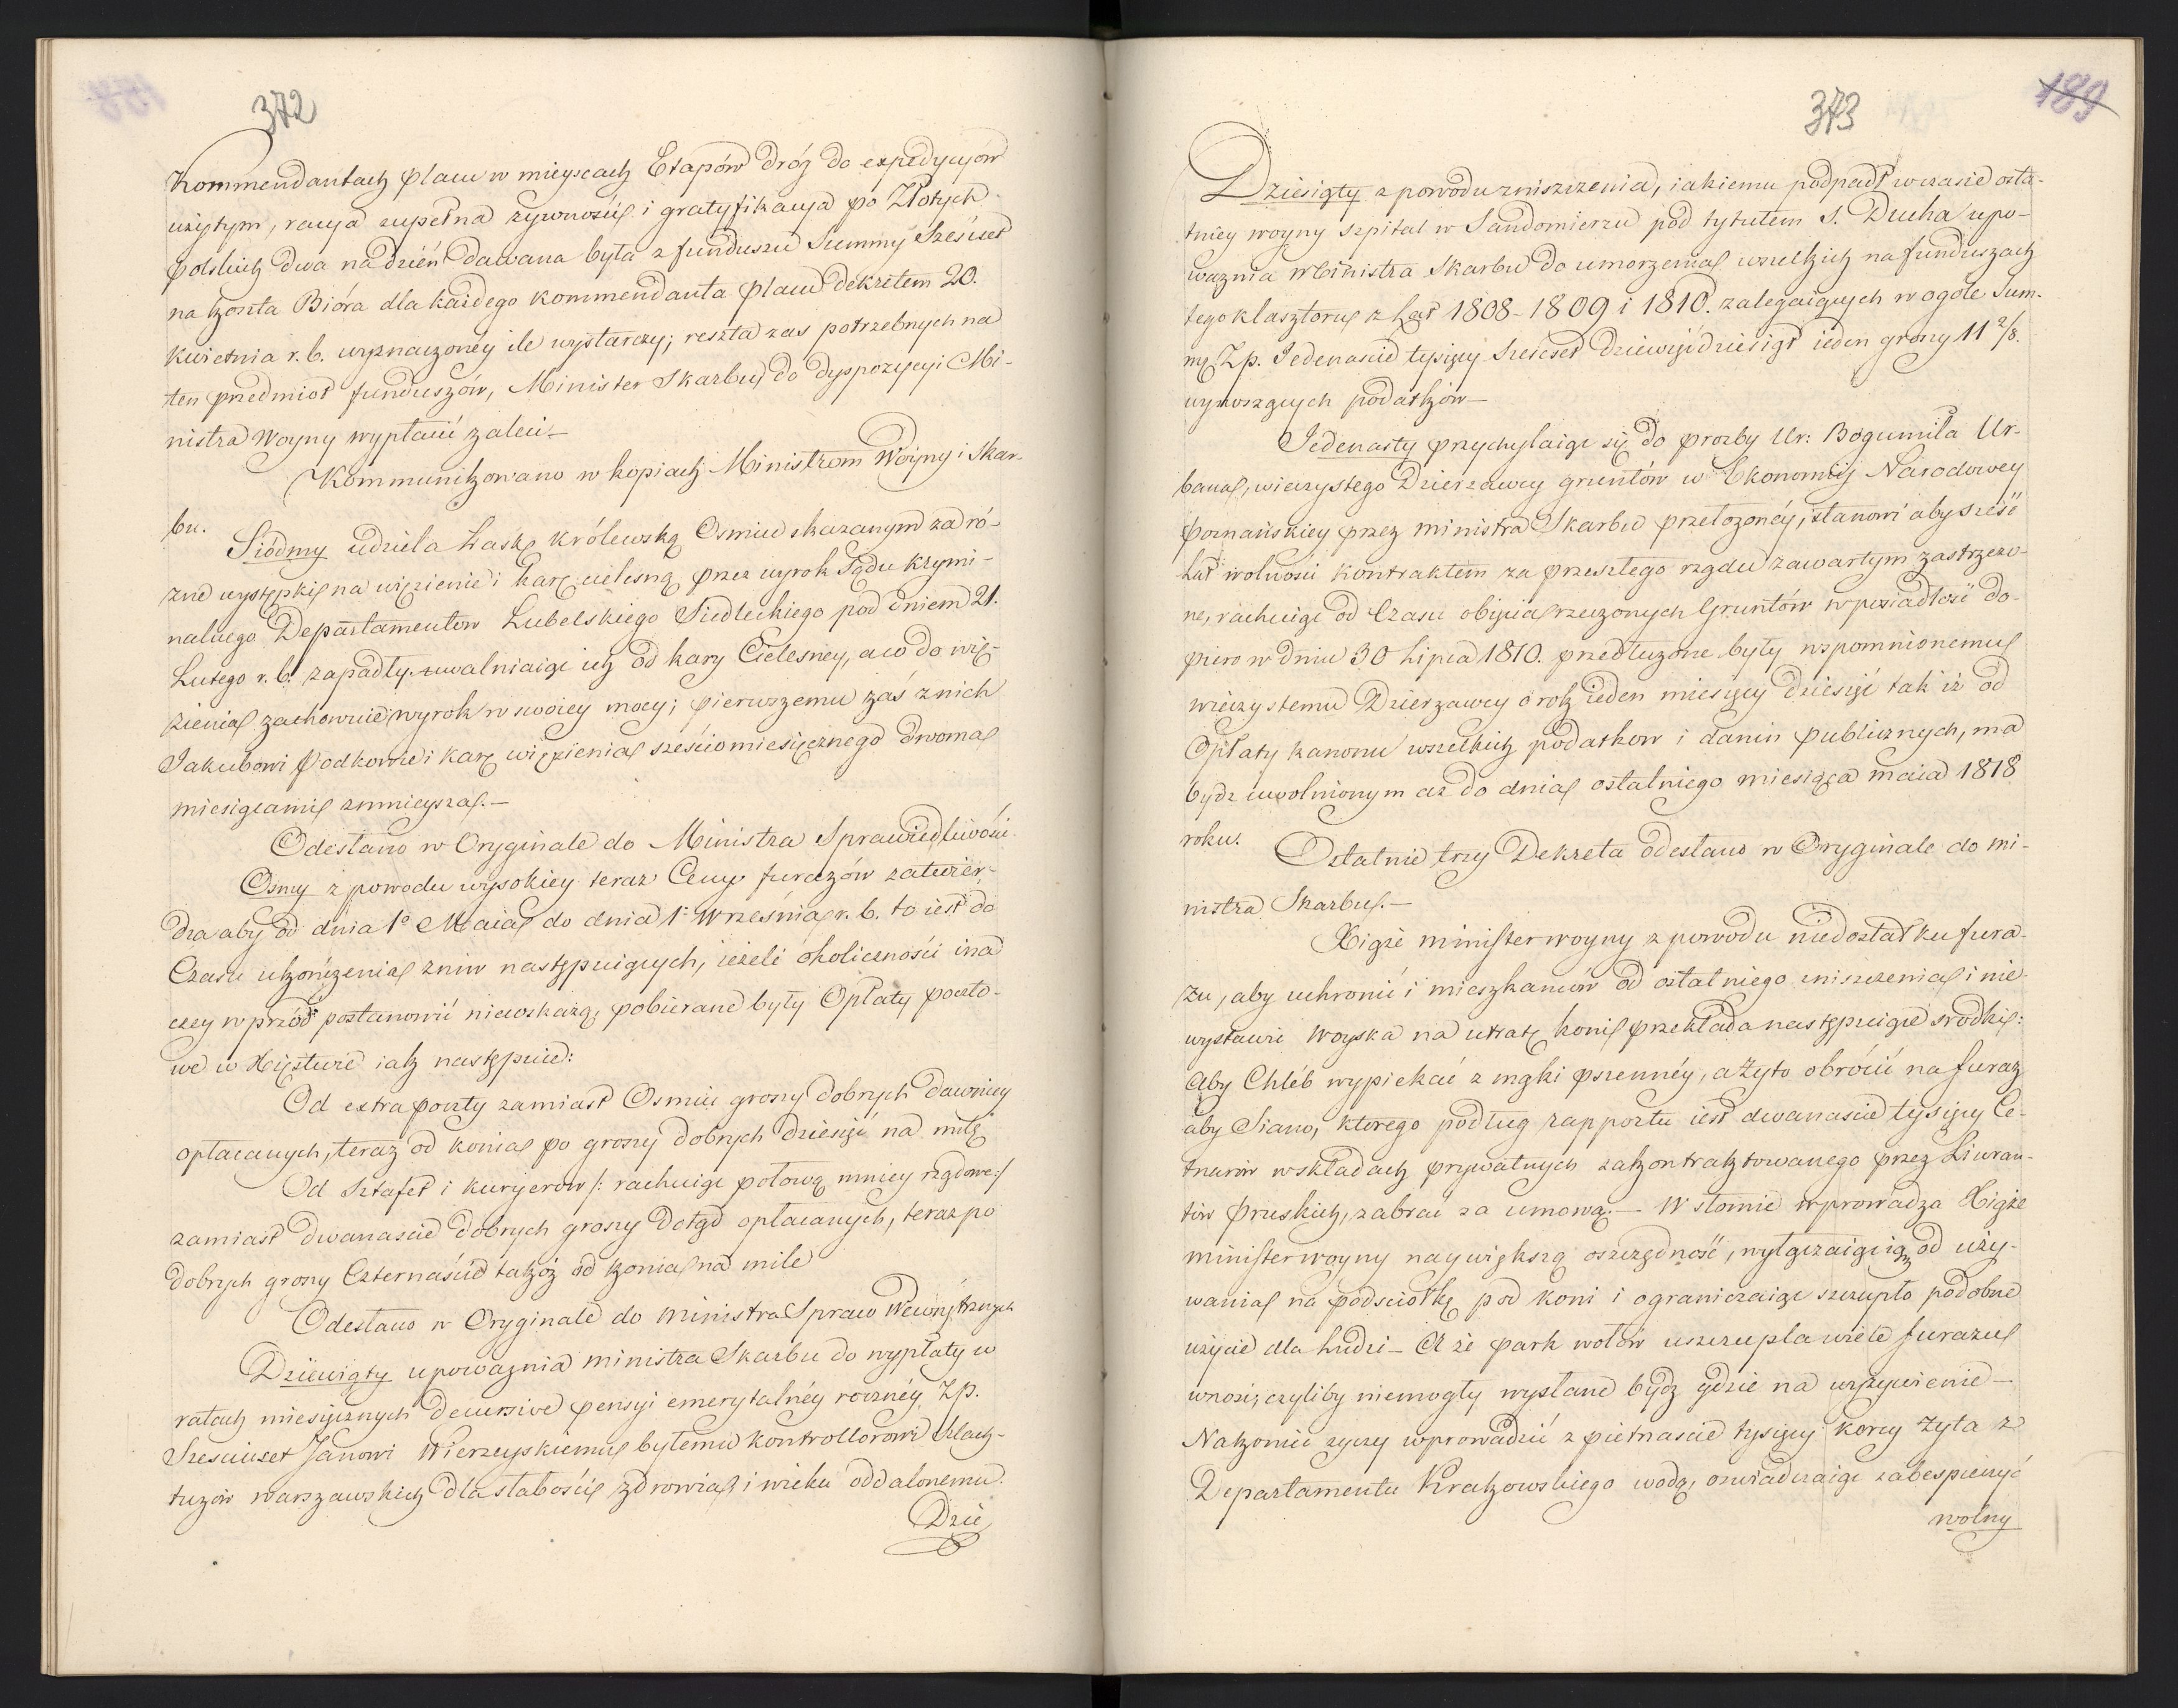 372
Kommendantach placu w mieyscach Etapów dróg do expedycyów
użytym, racya zupełna żywności i gratyfikacya po Złotych
polskich dwa na dzień dawana była z funduszu Summy Sześciset
na koszta Bióra dla każdego kommendanta placu dekretem 20.
kwietnia r. b. wyznaczoney ile wystarczy; reszta zas potrzebnych na
ten przedmiot funduszów, Minister Skarbu do dyspozycyi Mi-
nistra Woyny wypłacić zaleci. —
Kommunikowano w kopiach Ministrom Woyny i Skar-
bu.
Siódmy udziela Łaskę królewską Osmiu skazanym za ró-
żne występki na więzienie i karę cielesną przez wyrok Sądu krymi-
nalnego Departamentow Lubelskiego Siedleckiego pod dniem 21.
Lutego r. b. zapadły. uwalniaiąc ich od kary Cielesney, a co do wię-
zienia zachowuie wyrok w swoiey mocy; pierwszemu zaś z nich
Jakubowi Podkowie i karę więzienia sześciomiesięcznego dwoma
miesiącami zmnieysza. —
Odesłano w Oryginale do Ministra Sprawiedliwości.
Osmy z powodu wysokiey teraz Ceny furażów zatwier-
dza aby od dnia 1º Maia do dnia 1º Września r. b. to iest do
Czasu ukończenia żniw następuiących, ieżeli okoliczności ina-
czey wprzód postanowić niewskażą, pobierane były Opłaty poczto-
we w Xięstwie iak następuie:
Od extrapoczty zamiast Osmiu groszy dobrych dawniey
opłacanych, teraz od konia po groszy dobrych dziesięć na milę
Od Sztafet i kuryerow /: rachuiąc połową mniey rządowe :/
zamiast dwanascie dobrych groszy dotąd opłacanych, teraz po
dobrych groszy Czternaście takoż od konia na mile
Odesłano w Oryginale do Ministra Spraw Wewnętrznych
Dziewiąty upoważnia ministra Skarbu do wypłaty w
ratach miesięcznych decursive pensyi emerytalnéy rocznéy Zp.
Szesciuset Janowi Wierzeyskiemu byłemu kontrollorowi szlach-
tuzów warszawskich dla słabości zdrowia i wieku oddalonemu.
Dzie
373
189
Dziesiąty z powodu zniszczenia, iakiemu podpadł w czasie osta-
tniey woyny szpital w Sandomierzu pod tytułem S. Ducha upo-
ważnia Ministra Skarbu do umorzenia wszelkich na funduszach
tego klasztoru z Lat 1808-1809 i 1810. zalegaiących w ogóle Sum-
mę Zp. Jedenascie tysięcy szescset dziewięćdziesiąt ieden groszy 11 2/8.
wynoszących podatków —
Jedenasty przychylaiąc się do prozby Ur: Bogumiła Ur-
bana, wieczystego Dzierzawcy gruntów w Ekonomij Narodowey
poznańskiey przez ministra Skarbu przełożonéy, stanowi aby sześć
Lat wolnosci kontraktem za przeszłego rządu zawartym zastrzeżo-
ne, rachuiąc od Czasu obięcia rzeczonych Gruntów w posiadłość do-
piero w dniu 30 Lipca 1810. przedłużone były wspomnionemu
wieczystemu Dzierzawcy o rok ieden miesięcy dziesięć tak iż od
Opłaty kanonu wszelkich podatkow i danin publicznych, ma
bydz uwolnionym aż do dnia ostatniego miesiąca maia 1818
roku.
Ostatnie trzy Dekreta odesłano w Oryginale do mi-
nistra Skarbu. —
Xiąże minister woyny z powodu niedostatku fura-
żu, aby uchronić i mieszkancow od ostatniego zniszczenia i nie
wystawić Woyska na utratę koni przekłada następuiące srodki:
Aby Chleb wypiekać z mąki pszennéy, a Żyto obrócić na furaż
aby Siano, ktorego podług rapportu iest dwanascie tysięcy Ce-
tnarów w składach prywatnych zakontraktowanego przez Liweran-
tów Pruskich, zabrać za umową. — W słomie wprowadza Xiąże
minister woyny naywiększą oszczędność, wyłączaiąc ią od uży-
wania na podsciołkę pod koni i ograniczaiąc szczupło podobne
użycie dla ludzi — A że park wołów uszczupla wiele furażu
wnosi, czyliby niemogły wysłane bydz gdzie na wyżywienie —
Nakoniec życzy wprowadzić z pietnascie tysięcy korcy żyta z
Departamentu Krakowskiego wodą, oswiadczaiąc zabespieczyć
wolny